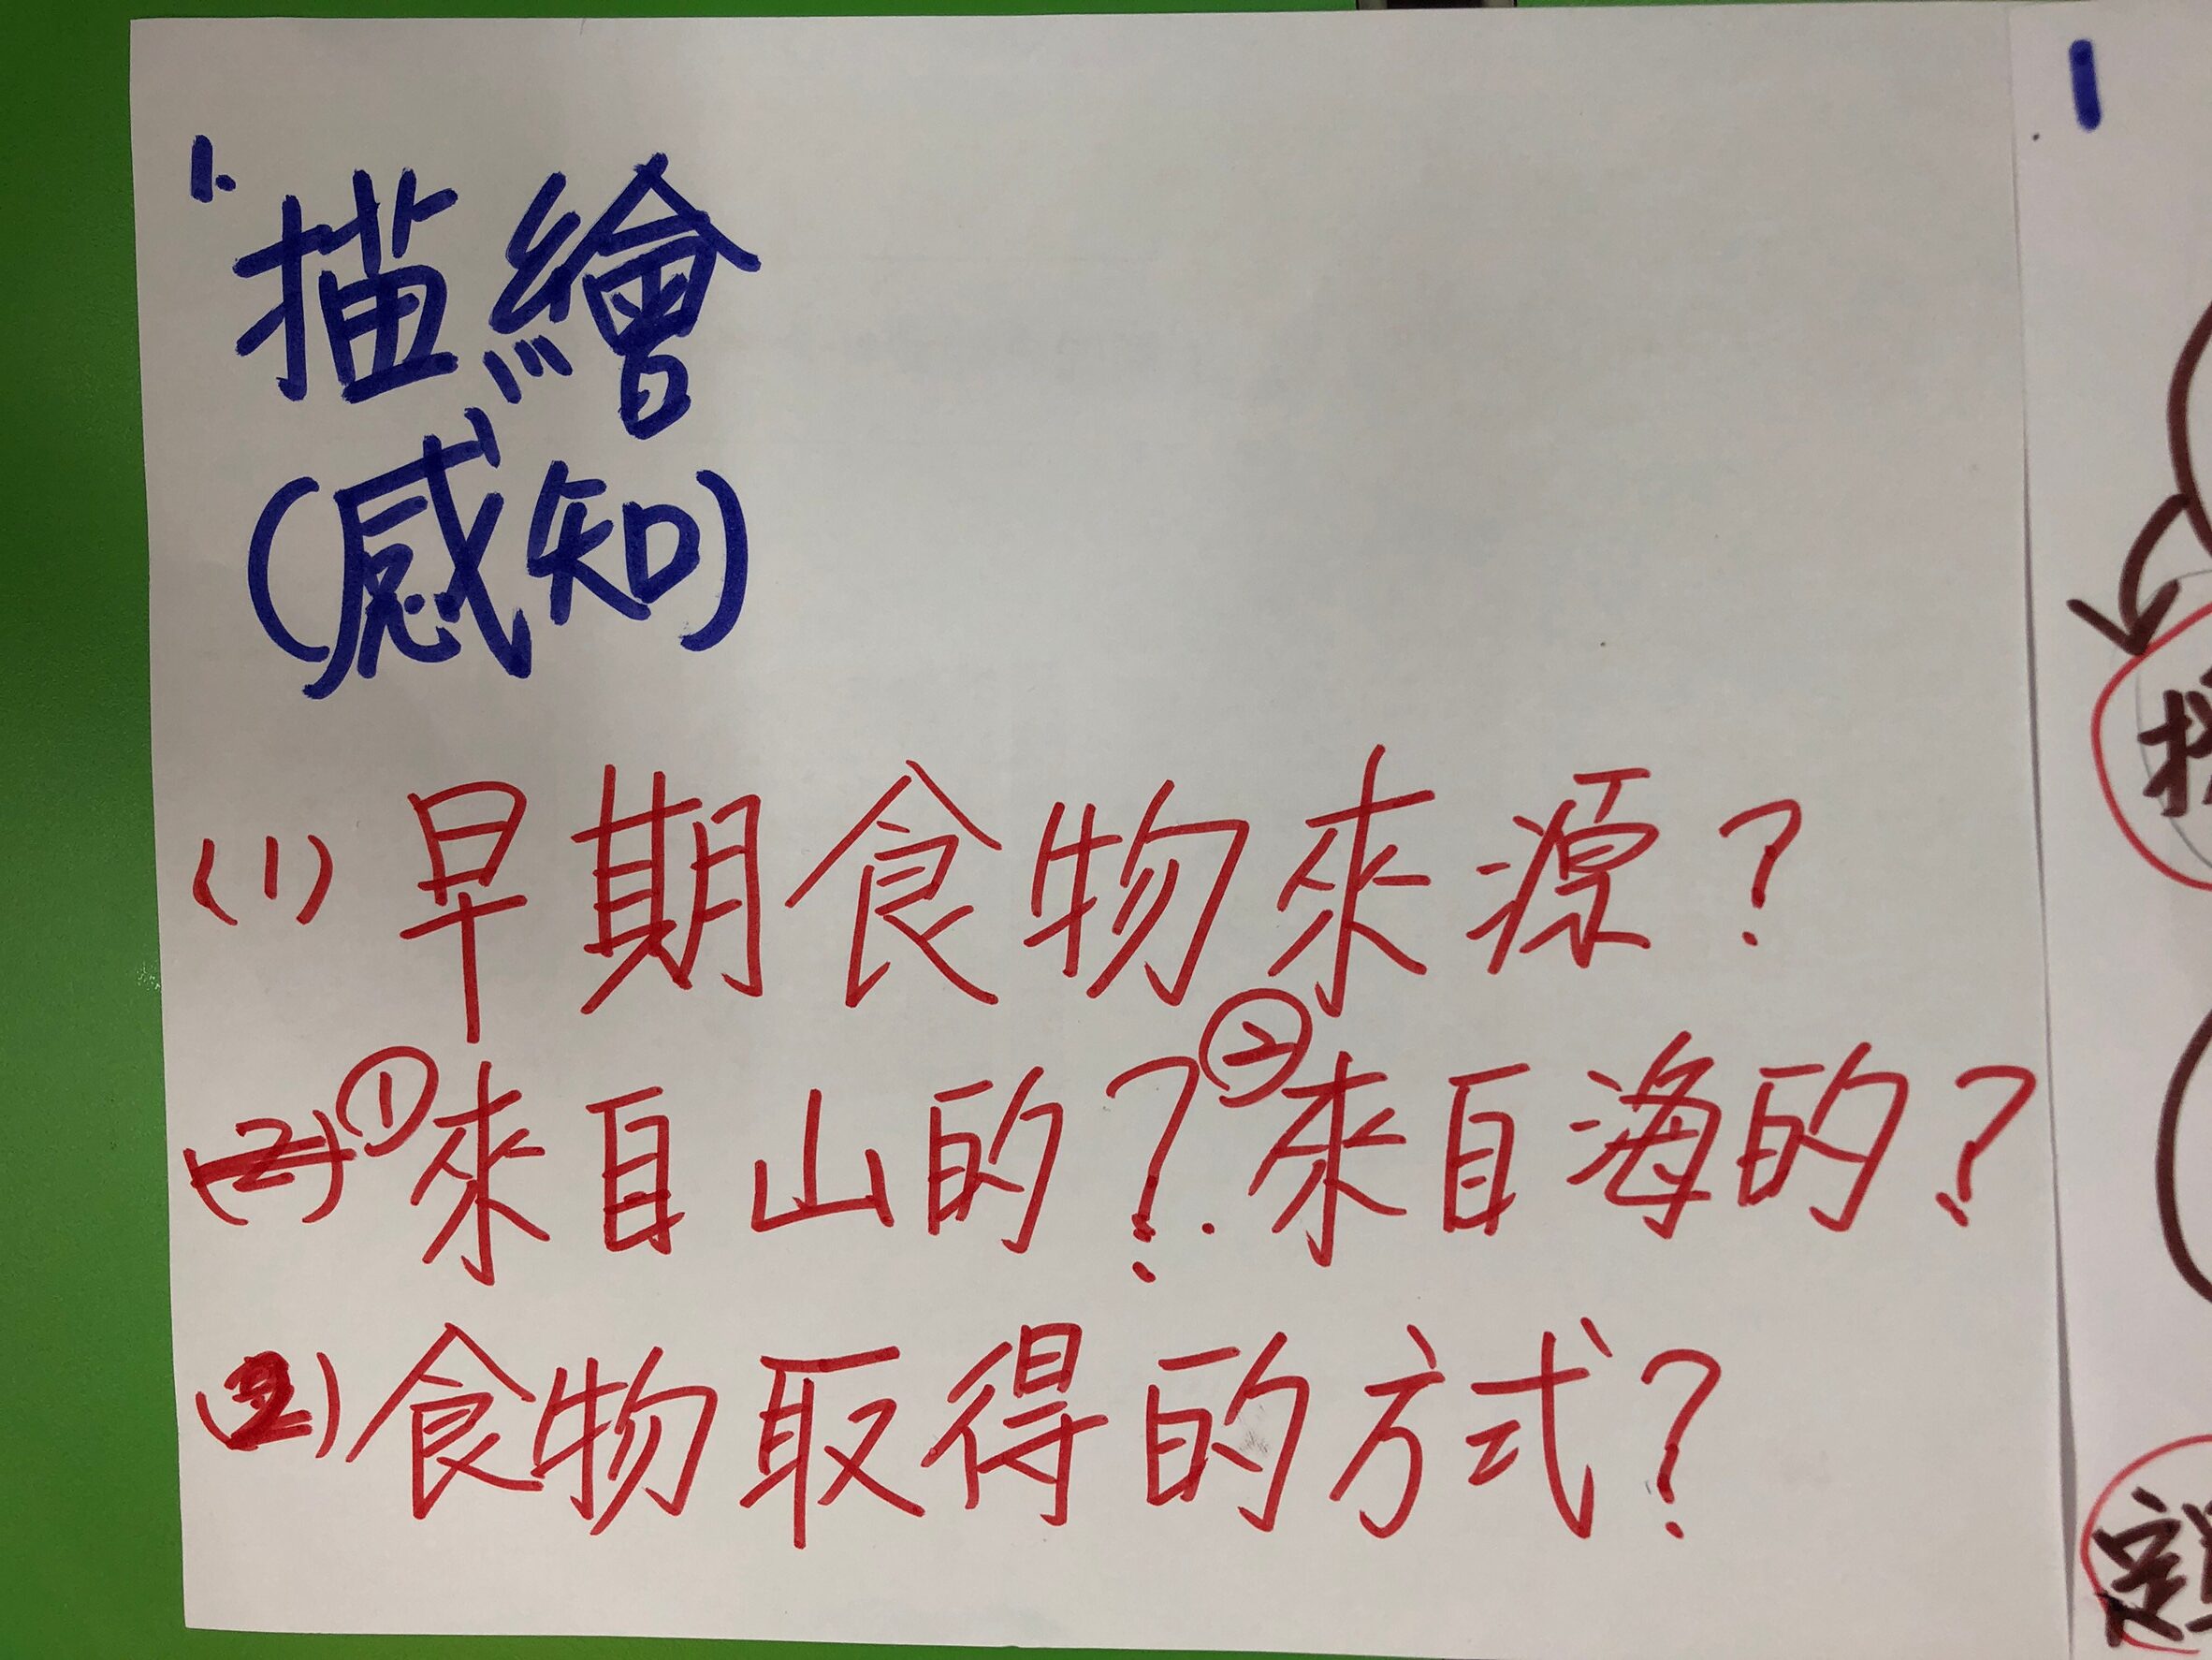 1.
描繪
(感知)
(1) 早期食物來源?
①來自山的? ②來自海的?
(2) 食物取得的方式?
1